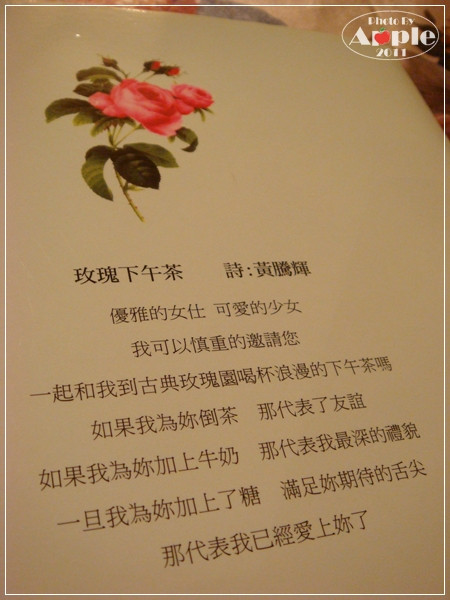 Photo By
Apple
2011
玫瑰下午茶 詩:黃騰輝
優雅的女仕 可愛的少女
我可以慎重的邀請您
一起和我到古典玫瑰園喝杯浪漫的下午茶嗎
如果我為妳倒茶 那代表了友誼
如果我為妳加上牛奶 那代表我最深的禮貌
一旦我為妳加上了糖 滿足妳期待的舌尖
那代表我已經愛上妳了